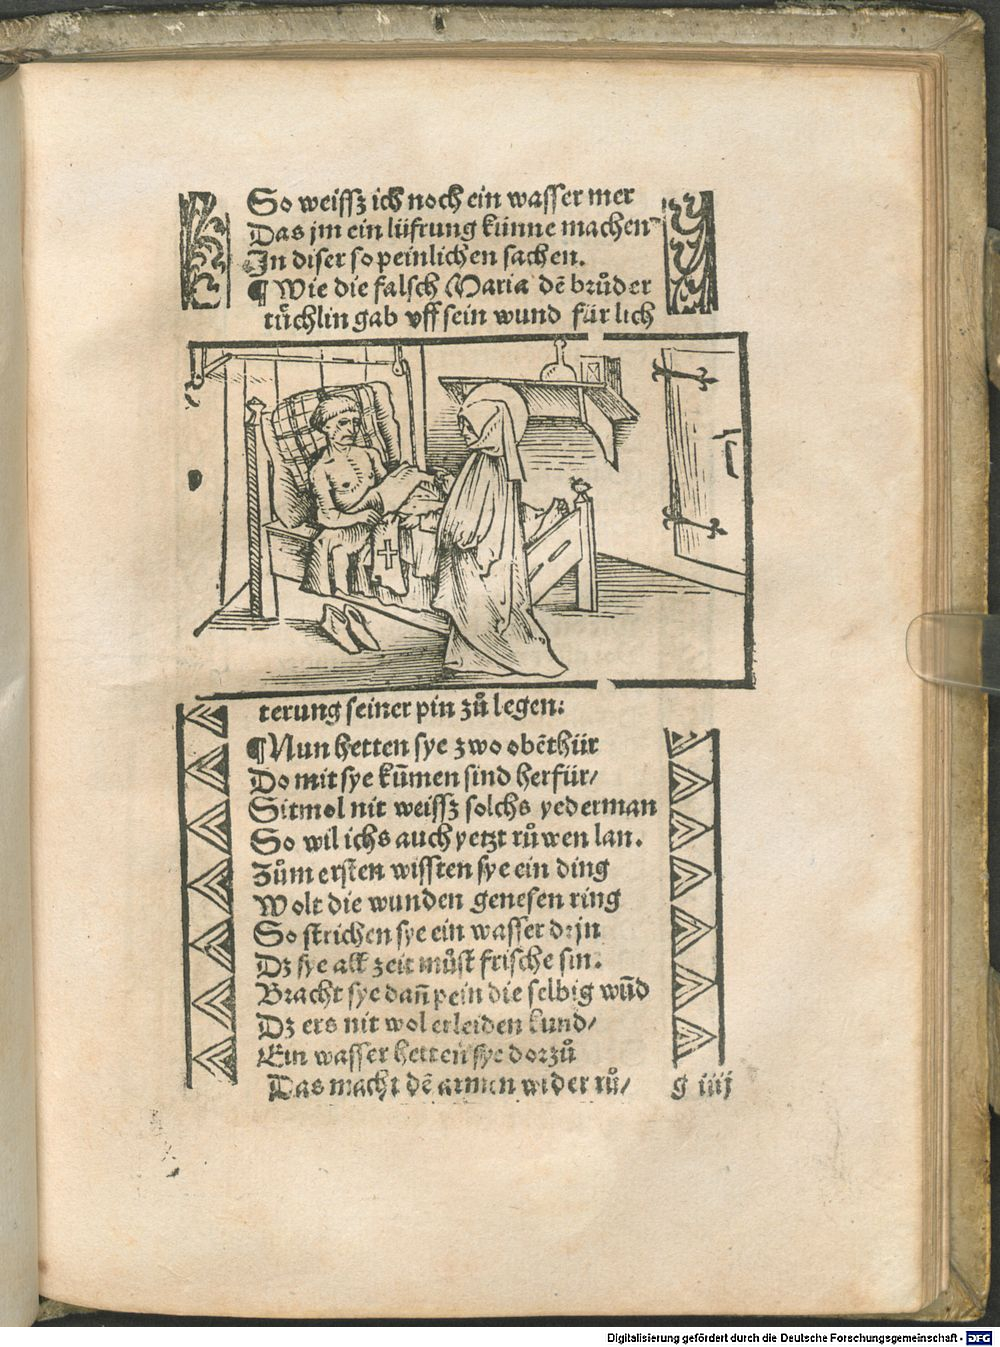 So weissz ich noch ein wasser mer
Das jm ein lüfrung künne machen
In diser so peinlichen sachen.
¶ Wie die falsch Maria dē brůder
tüchlin gab vff sein wund für lich
terung seiner pin zů legen:
¶ Nun hetten sye zwo obēthür
Do mit sye kūmen sind herfür/
Sitmol nit weissz solchs yederman
So wil ichs auch yetzt růwen lan.
Zům ersten wissten sye ein ding
Wolt die wunden genesen ring
So strichen sye ein wasser drjn
Dz sye all zeit můst frische sin.
Bracht sye dañ pein die selbig wūd
Dz ers nit wol erleiden kund/
Ein wasser hetten sye dorzů
Das macht dē armen wider rů/
g iiij
Digitalisierung gefördert durch die Deutsche Forschungsgemeinschaft - DFG